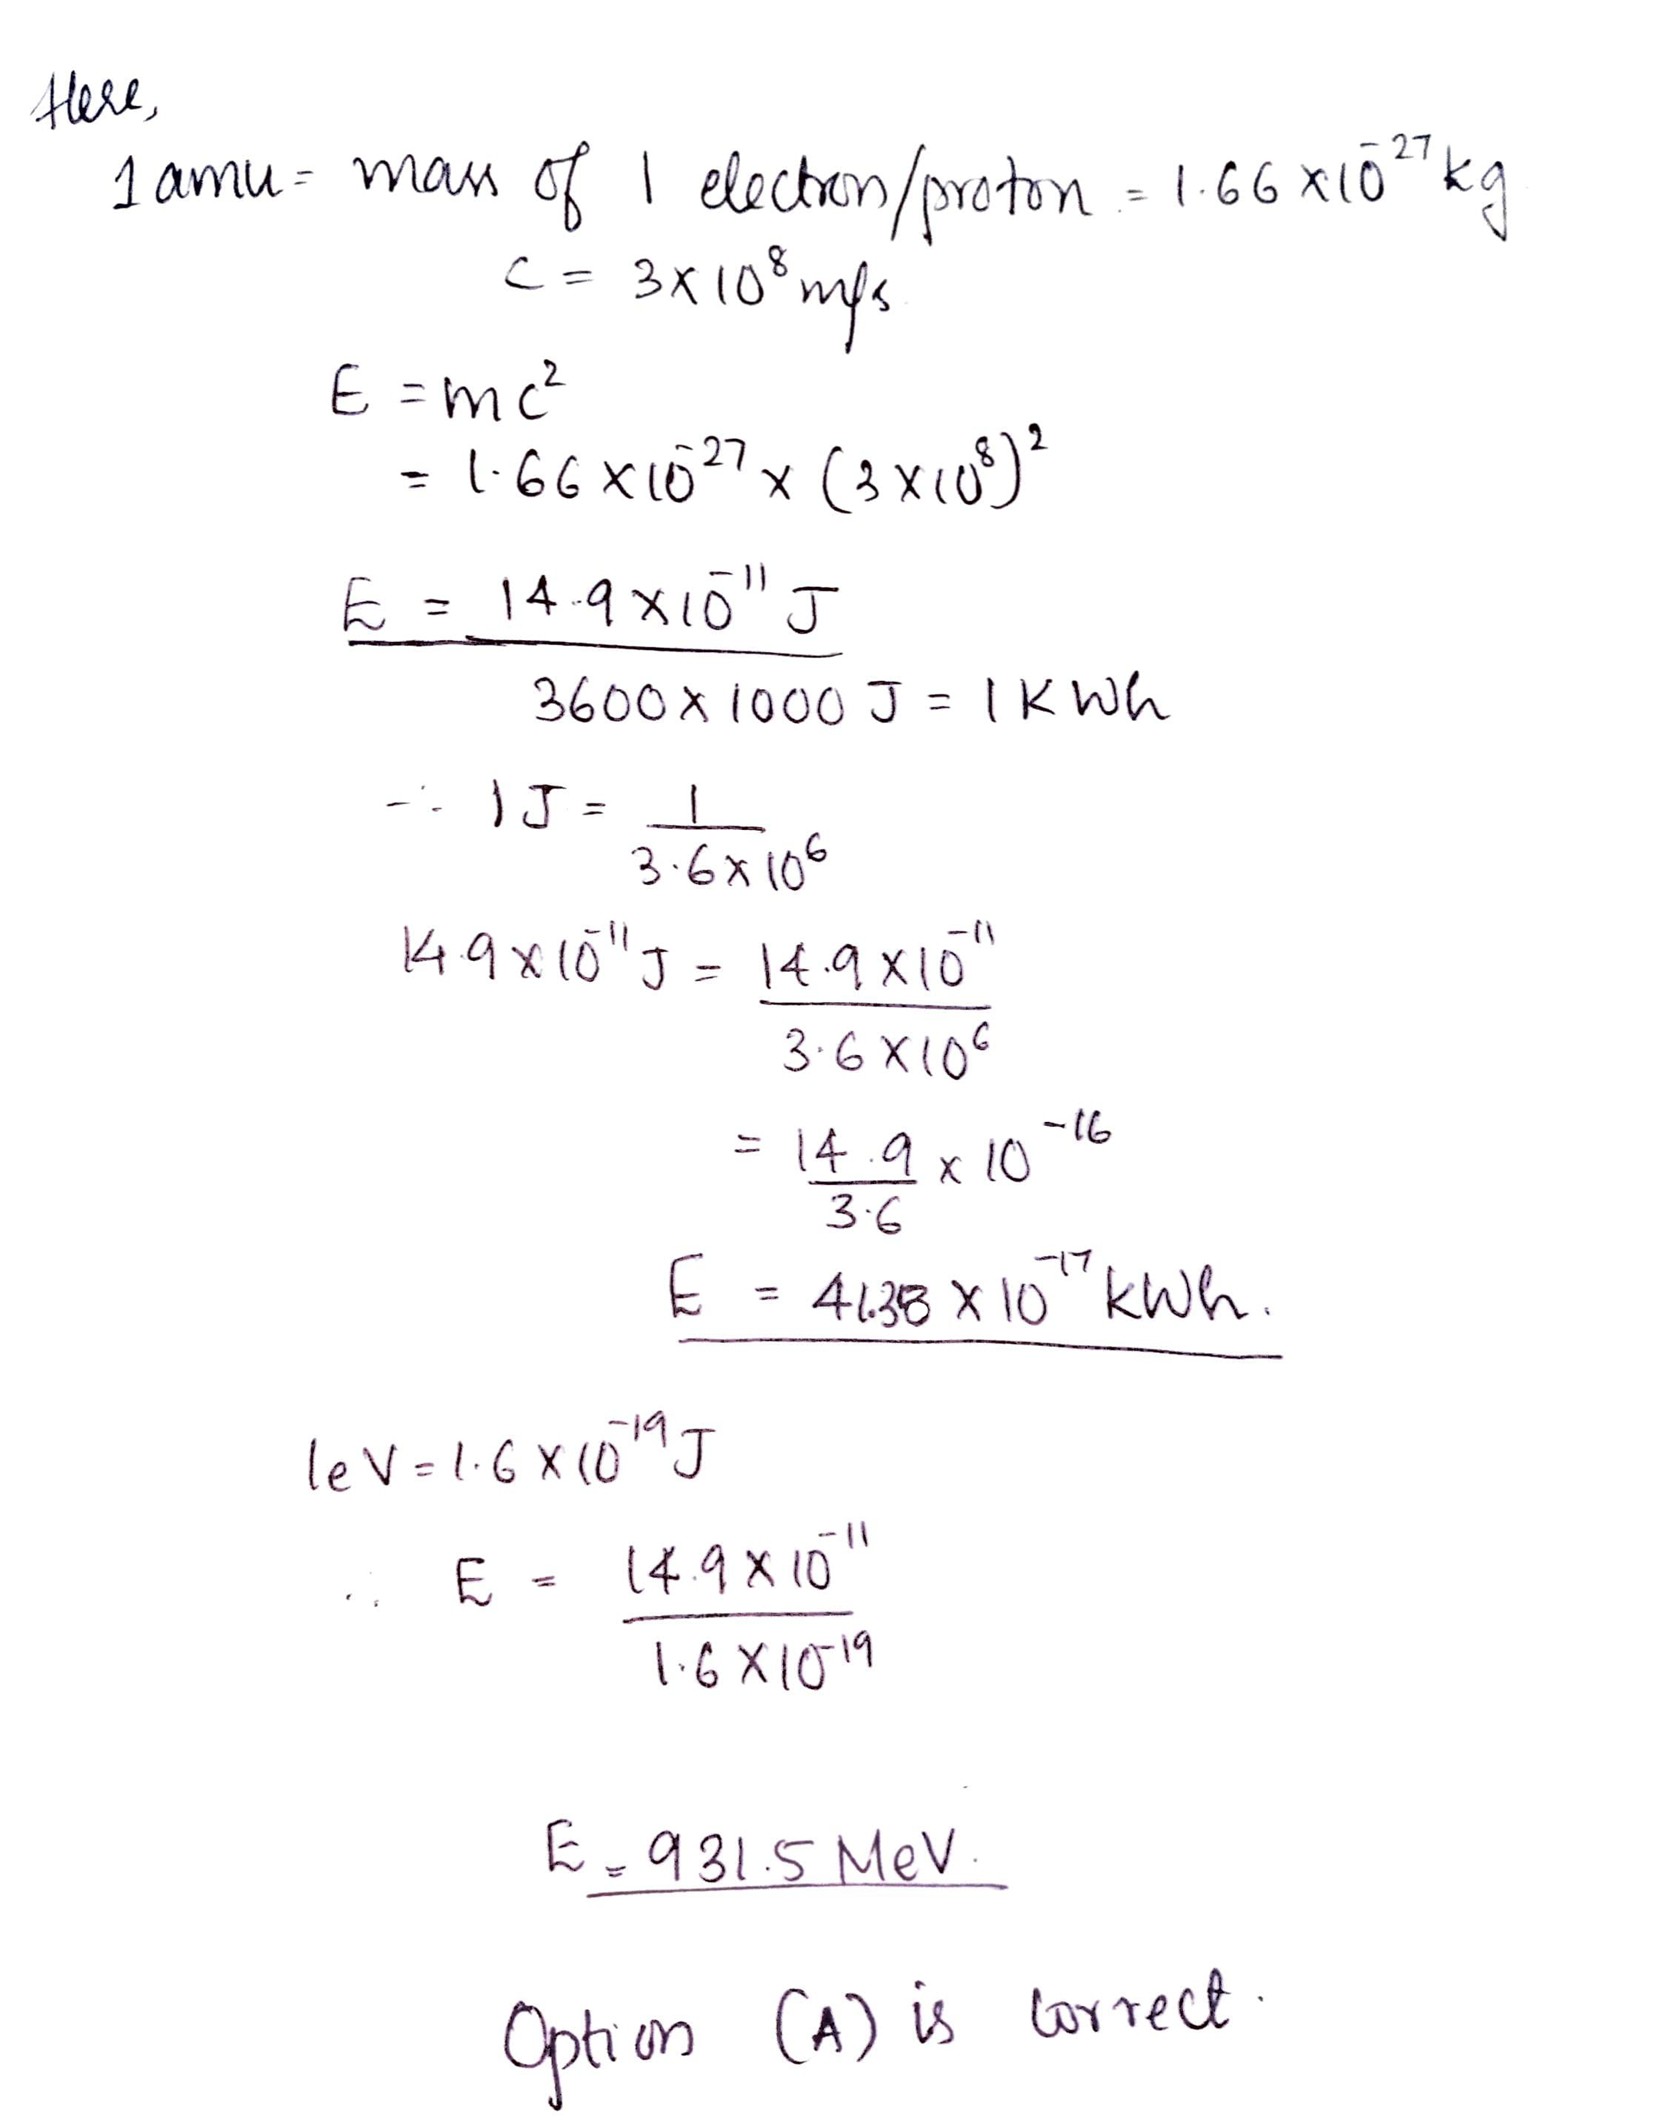 Here,
1 amu = mass of 1 electron/proton = 1.66 x 10⁻²⁷ kg
c = 3 x 10⁸ m/s
E = mc²
= 1.66 x 10⁻²⁷ x (3 x 10⁸)²
E = 14.9 x 10⁻¹¹ J
3600 x 1000 J = 1 KWh
∴ 1 J = 1 / 3.6 x 10⁶
14.9 x 10⁻¹¹ J = 14.9 x 10⁻¹¹ / 3.6 x 10⁶
= 14.9 / 3.6 x 10⁻¹⁶
E = 41.38 x 10⁻¹⁷ kWh.
1eV = 1.6 x 10⁻¹⁹ J
∴ E = 14.9 x 10⁻¹¹ / 1.6 x 10⁻¹⁹
E = 931.5 MeV.
Option (A) is correct.